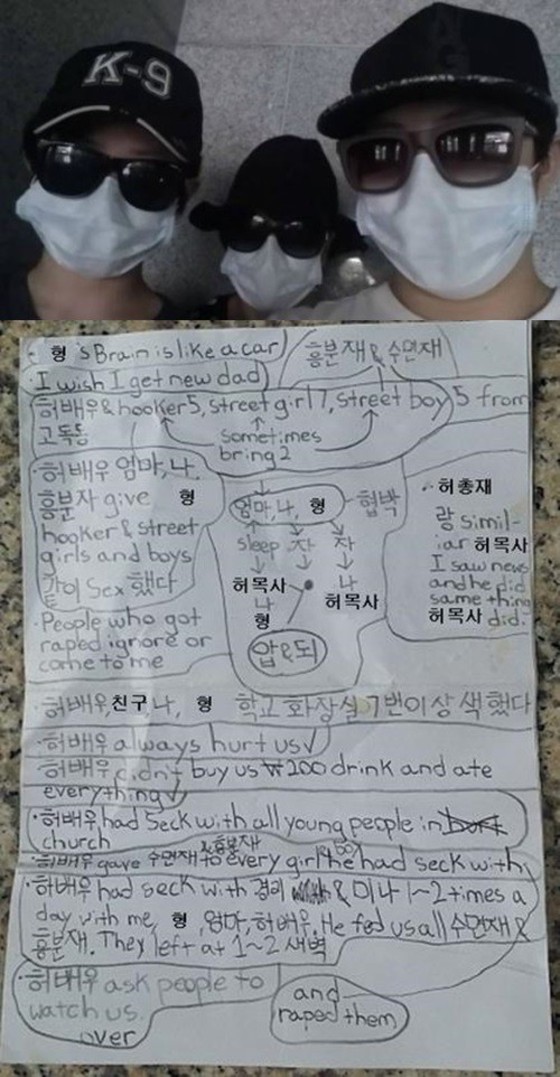 K-9
형 's Brain is like a car
흥분재 & 수면재
I wish I get new dad
허배우 & hooker 5, street girl 7, street boy 5 from
sometimes
bring 2
· 허배우 엄마, 나,
흥분자 give 형
hooker & street
girls and boys
같이 sex 했다
· People who got
raped ignore or
come to me
엄마, 나, 형 협박
sleep 자 자
허목사 나
나 허목사
형
· 허총재
랑 simil-
iar 허목사
I saw news
and he did
same thing
허목사 did.
· 허배우, 친구, 나, 형 학교 화장실 7번이상 색했다
· 허배우 always hurt us √
· 허배우 didn't buy us ₩200 drink and ate
everything √
· 허배우 had seck with all young people in
church
& 흥분재
· 허배우 gave 수면재 to every girl he had seck with
· 허배우 had seck with & 미나 1~2 times a
day with me, 형, 엄마, 허배우. He fed us all 수면재 &
흥분재. They left at 1~2 새벽
· 허배우 ask people to
watch us.
over
and
raped them